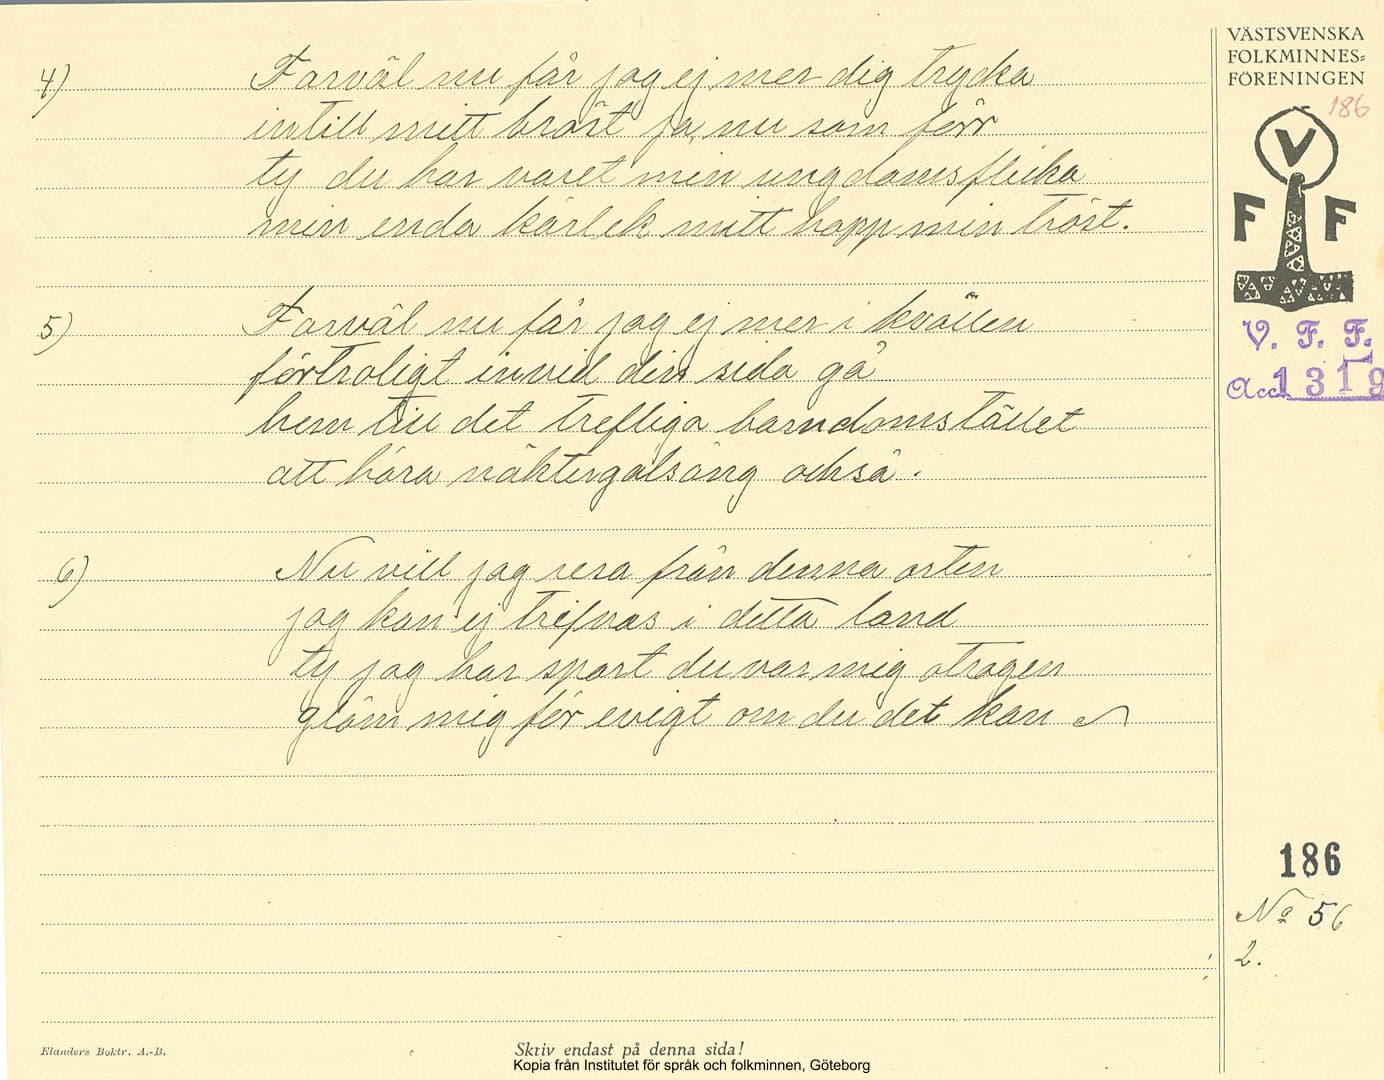 VÄSTSVENSKA
FOLKMINNES-
FÖRENINGEN
186
V
F F
V. F. F.
Acc. 1319
4) Farväl nu får jag ej mer dig trycka
intill mitt bröst ja, nu som förr
ty du har varet min ungdomsflicka
min enda kärlek mitt hopp min tröst.
5) Farväl nu får jag ej mer i kvällen
förtroligt invid din sida gå
hem till det trefliga barndomstället
att höra näktergalsång också.
6) Nu vill jag resa från denna orten
jag kan ej trifvas i detta land
ty jag har sport du var mig otrogen
glöm mig för evigt om du det kan
186
No 56
2.
Elanders Boktr. A.-B.
Skriv endast på denna sida!
Kopia från Institutet för språk och folkminnen, Göteborg